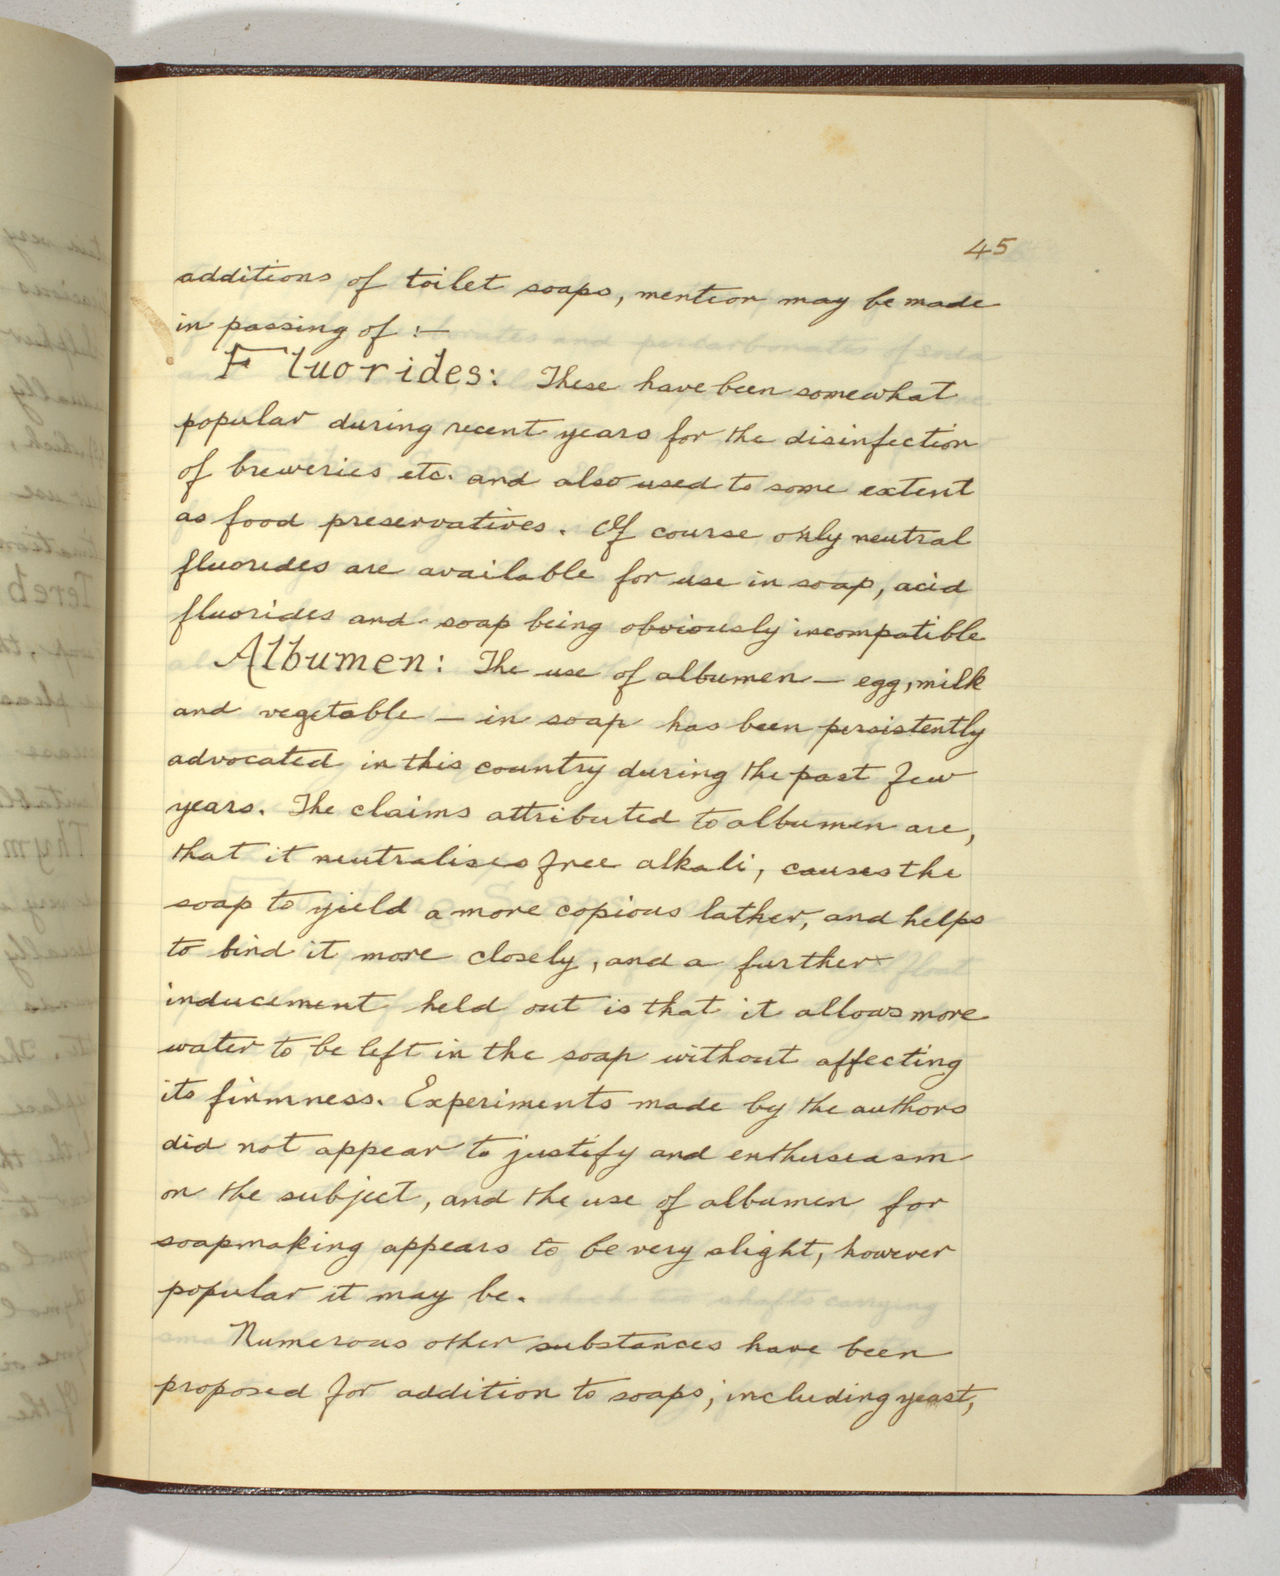 45
additions of toilet soaps, mention may be made
in passing of :—
Fluorides: These have been somewhat
popular during recent years for the disinfection
of breweries etc. and also used to some extent
as food preservatives. Of course only neutral
fluorides are available for use in soap, acid
fluorides and soap being obviously incompatible
Albumen: The use of albumen — egg, milk
and vegetable — in soap has been persistently
advocated in this country during the past few
years. The claims attributed to albumen are,
that it neutralises free alkali, causes the
soap to yield a more copious lather, and helps
to bind it more closely, and a further
inducement held out is that it allows more
water to be left in the soap without affecting
its firmness. Experiments made by the authors
did not appear to justify and enthusiasm
on the subject, and the use of albumen for
soapmaking appears to be very slight, however
popular it may be.
Numerous other substances have been
proposed for addition to soaps, including yeast,